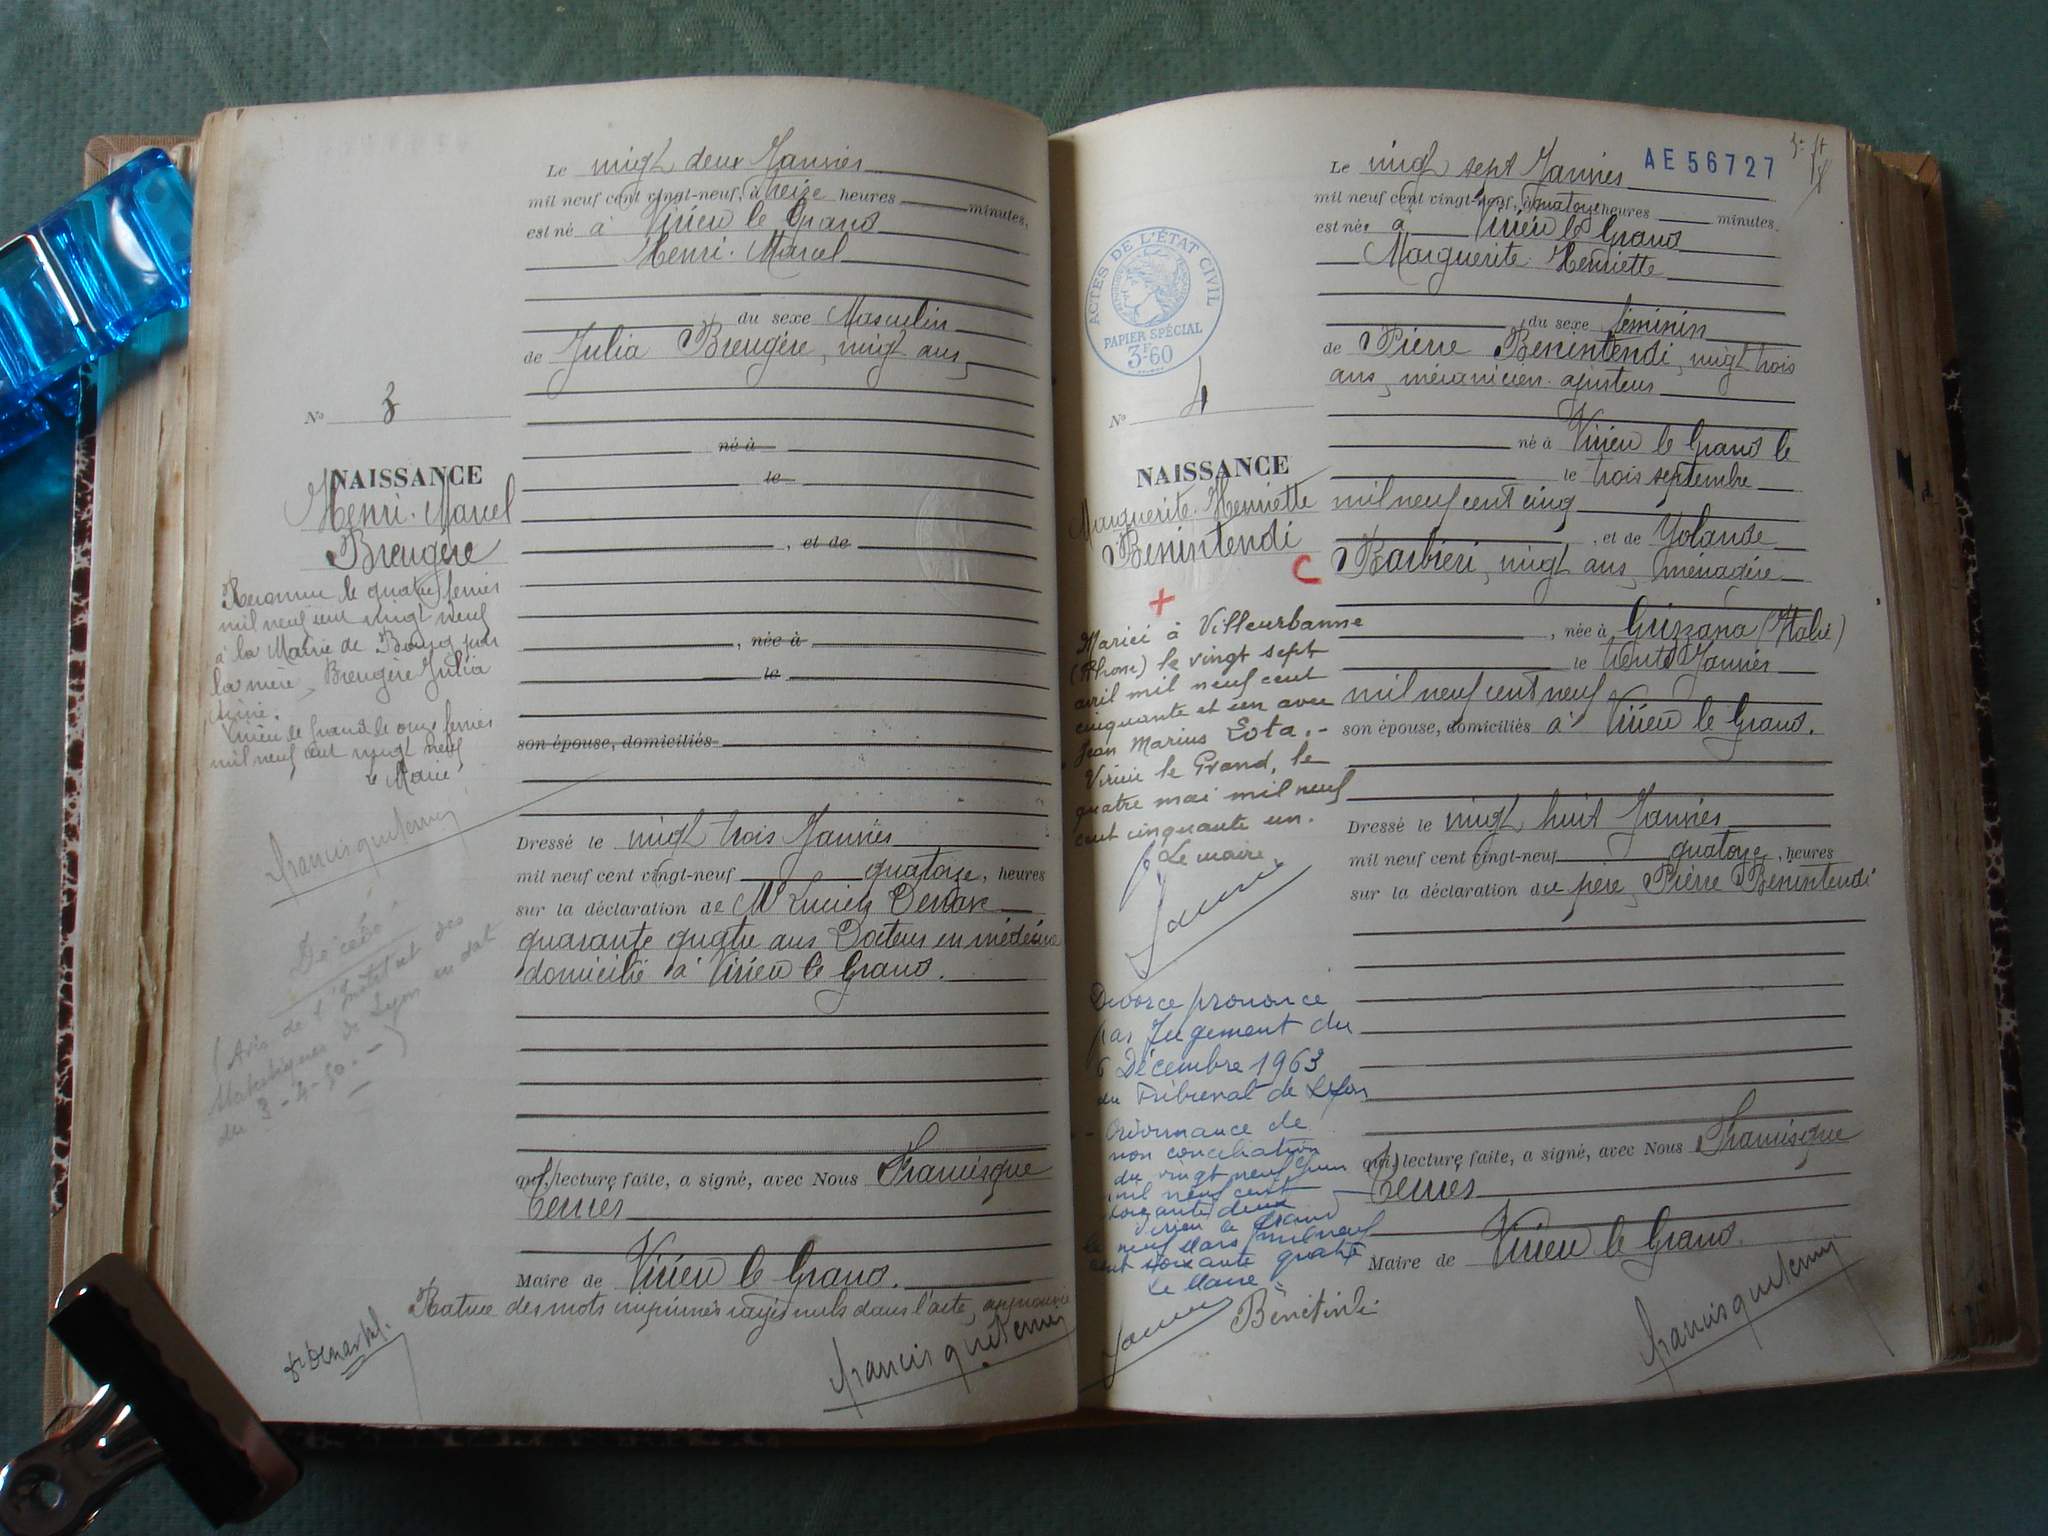 Le vingt deux Janvier
mil neuf cent vingt-neuf, à treize heures minutes,
est né à Virieu le Grand
Henri. Marcel
du sexe Masculin
de Julia Breugère, vingt ans,
né à
le
, et de
, née à
le
son épouse, domiciliés
Dressé le vingt trois Janvier
mil neuf cent vingt-neuf quatorze, heures
sur la déclaration de Mr Lucien
quarante quatre ans Docteur en médecine
domicilié à Virieu le Grand.
qui, lecture faite, a signé, avec Nous Francisque
Ternes
Maire de Virieu le Grand.
Rature des mots imprimés rayés nuls dans l'acte, approuvée
No 3
NAISSANCE
Henri. Marcel
Breugère
Reconnu le quatre février
mil neuf cent vingt neuf
à la Mairie de Bourg par
la mère, Breugère Julia
Virieu le Grand le onze février
mil neuf cent vingt neuf
le Maire
Décédé
(Avis de l'Institut des
de Lyon en dat
du 3-4-50.-)
AE 56727
Le vingt sept Janvier
mil neuf cent vingt-neuf, à quatorze heures minutes.
est née à Virieu le Grand
Marguerite. Henriette
du sexe féminin
de Pierre Benintendi, vingt trois
ans, mécanicien. ajusteur
né à Virieu le Grand le
le trois septembre
mil neuf cent cinq
, et de Yolande
Barbieri, vingt ans, ménagère
, née à Grizzana (Italie)
le trente Janvier
mil neuf cent neuf
son épouse, domiciliés à Virieu le Grand.
Dressé le vingt huit Janvier
mil neuf cent vingt-neuf quatorze, heures
sur la déclaration du père, Pierre Benintendi
qui, lecture faite, a signé, avec Nous Francisque
Ternes
Maire de Virieu le Grand
ACTES DE L'ÉTAT CIVIL
PAPIER SPÉCIAL
3F60
No 4
NAISSANCE
Marguerite. Henriette
Benintendi
C
+
Mariée à Villeurbanne
(Rhône) le vingt sept
avril mil neuf cent
cinquante et un avec
Jean Marius Lota.-
Virieu le Grand, le
quatre mai mil neuf
cent cinquante un.
Le maire,
Divorce prononcé
par Jugement du
6 Décembre 1963
du Tribunal de Lyon
- Ordonnance de
non conciliation
du vingt neuf Juin
mil neuf cent
soixante deux
Virieu le Grand
le neuf Mars mil neuf
cent soixante quatre
Le Maire